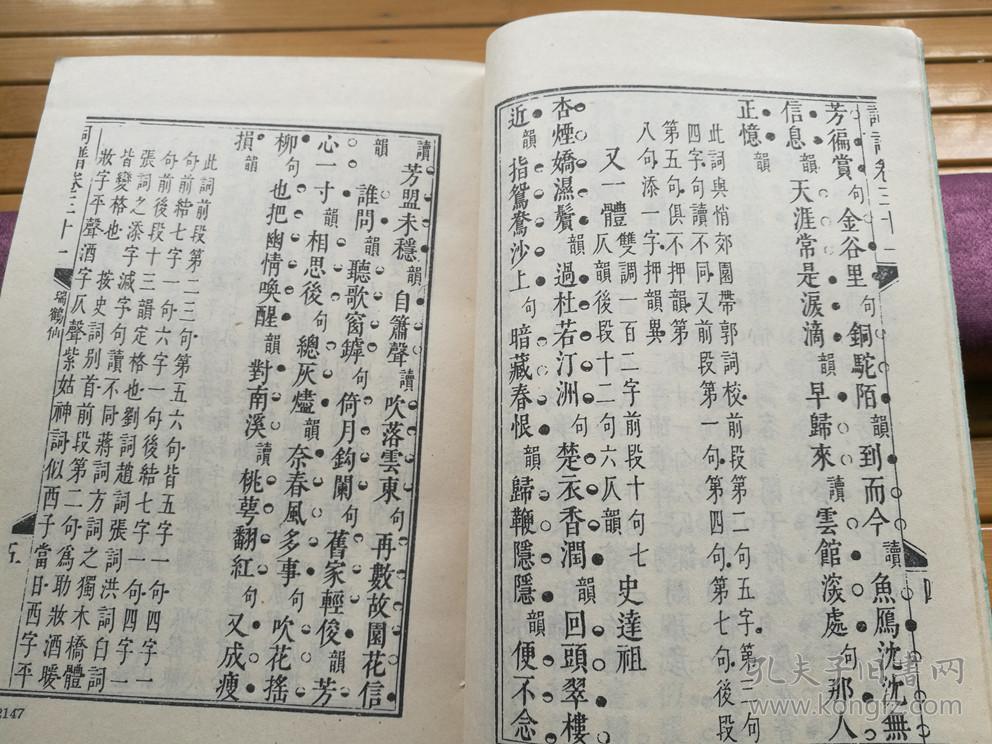 詞譜卷三十一
四
芳徧賞句金谷里句銅駝陌韻到而今讀魚鴈沈沈無
信息韻天涯常是淚滴韻早歸來讀雲館深處句那人
正憶韻
此詞與悄郊園帶郭詞校前段第二句五字第三句
四字句讀不同又前段第一句第四句第七句後段
第五句俱不押韻第
八句添一字押韻異
又一體雙調一百二字前段十句七
仄韻後段十二句六仄韻
史達祖
杏煙嬌濕鬢韻過杜若汀洲句楚衣香潤韻回頭翠樓
近韻指鴛鴦沙上句暗藏春恨韻歸鞭隱隱韻便不念
讀芳盟未穩韻自簫聲讀吹落雲東句再數故園花信
韻
誰問韻聽歌窗罅句倚月鈎闌句舊家輕俊韻芳
心一寸韻相思後句總灰燼韻奈春風多事句吹花搖
柳句也把幽情喚醒韻對南溪讀桃萼翻紅句又成瘦
損韻
此詞前段第二三句第五六句皆五字一句四字一
句前結七字一句六字一句後結七字一句四字一
句前後段十三韻定格也劉詞趙詞張詞洪詞白詞
張詞之添字減字句讀不同蔣詞方詞之獨木橋體
皆變格也
按史詞別首前段第二句爲助妝酒暖
妝字平聲酒字仄聲紫姑神詞似西子當日西字平
詞譜卷三十一
瑞鶴仙
五
2147
孔夫子旧書网
www.kongfz.com